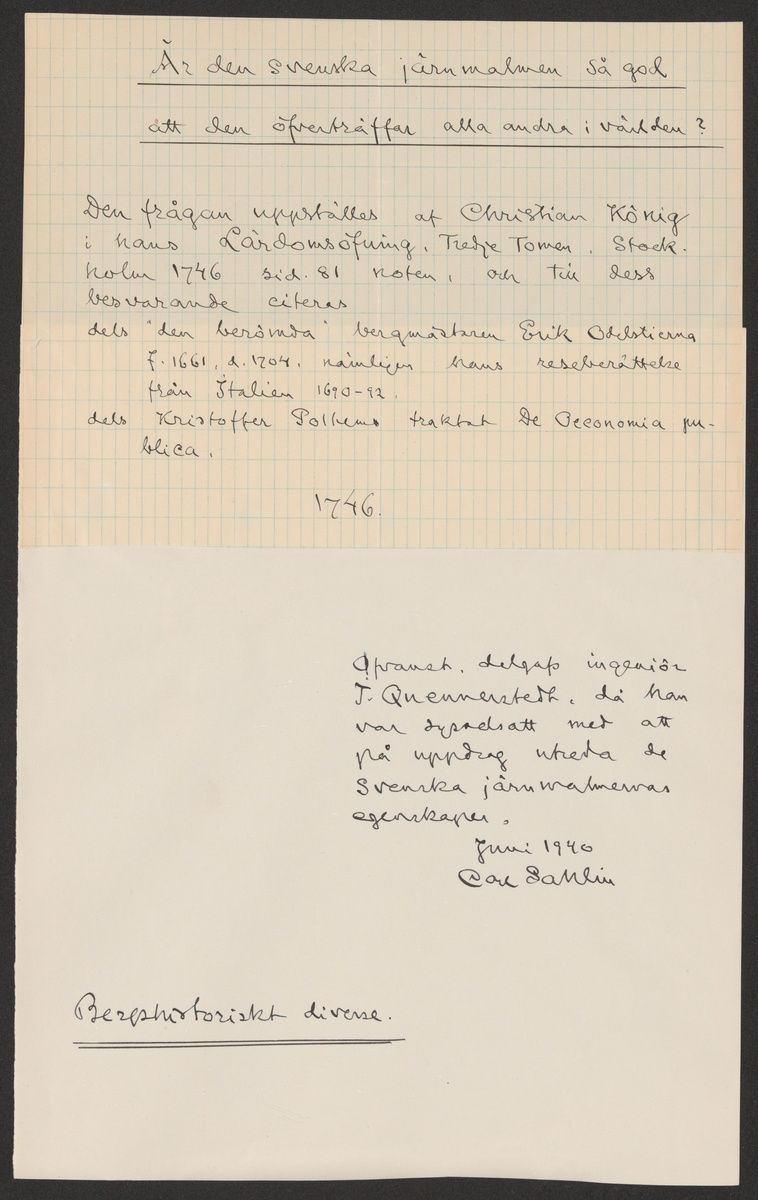 Är den svenska järnmalmen så god
att den öfverträffar alla andra i världen?
Den frågan uppställes af Christian König
i hans Lärdomsöfning, Tredje Tomen, Stock-
holm 1746 sid. 81 noten, och till dess
besvarande citeras
dels "den berömda" bergmästaren Erik Odelstierna
f. 1661, d. 1704, nämligen hans reseberättelse
från Italien 1690-92.
dels Kristoffer Polhems traktat De Oeconomia pu-
blica.
1746.
Ofvanst. delgafs ingeniör
T. Quennerstedt, då han
var sysselsatt med att
på uppdrag utreda de
svenska järnmalmernas
egenskaper.
Juni 1940
Carl Sahlin
Bergshistoriskt diverse.